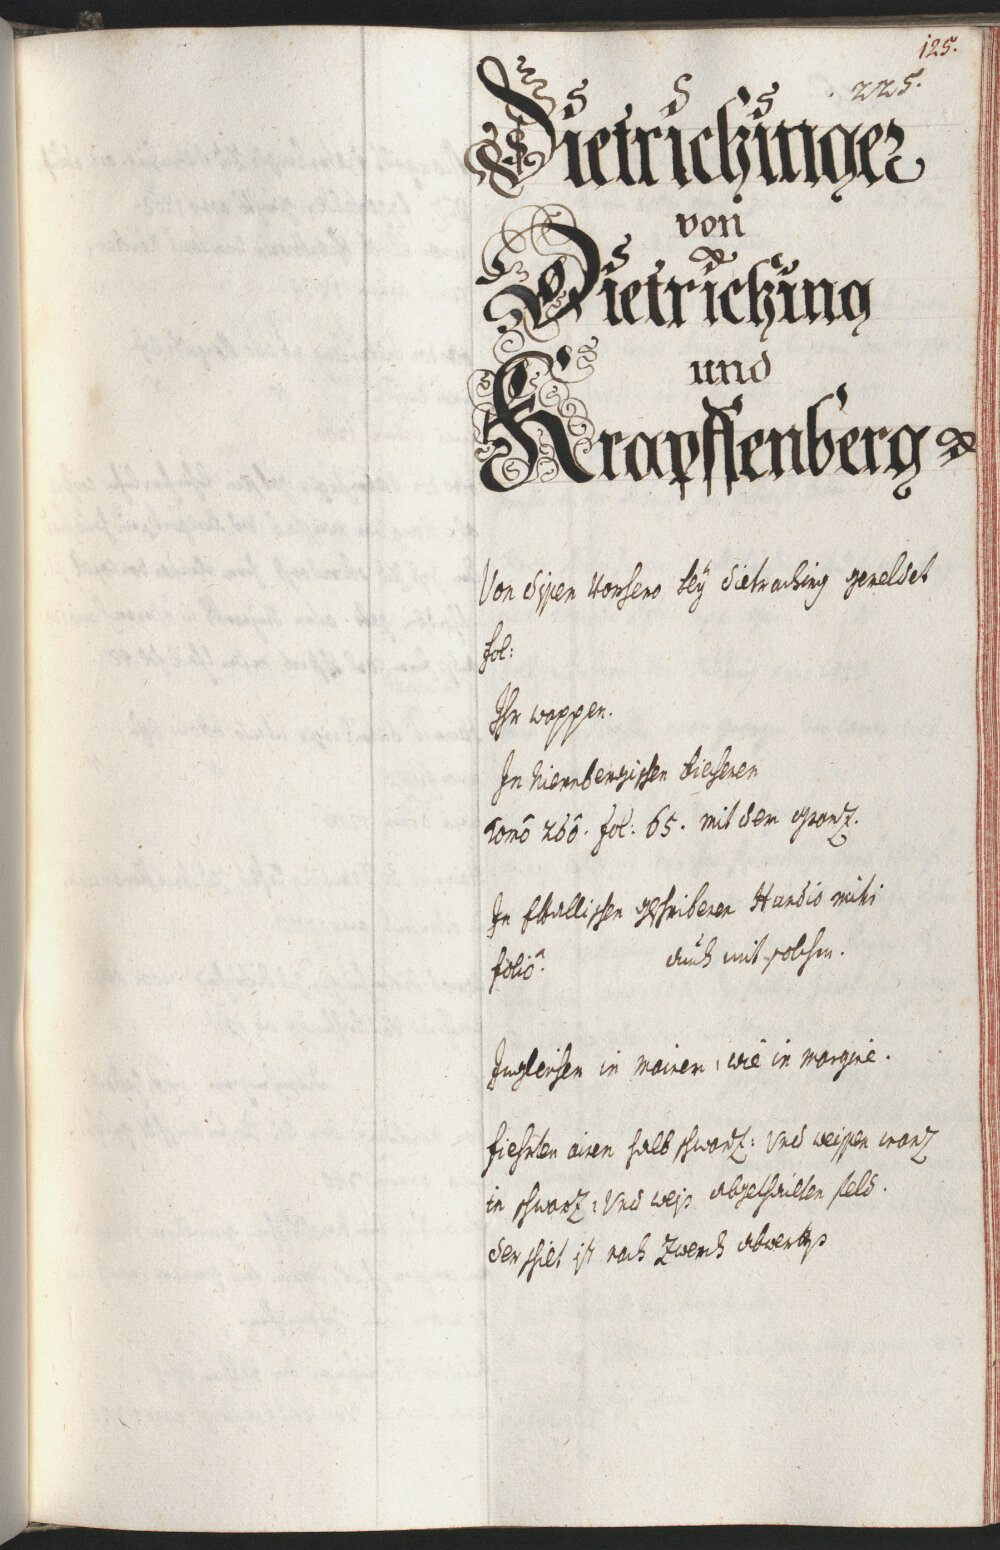 125.
225.
Dietrichinger
von
Dietriching
und
Krapffenberg
Von disen vorhero beÿ dietraching gemeldet
fol:
Ihr wappen.
In Niernbergischen biecheren
tomô 260. fol: 65. mit dem cranz.
In geschribenen Hundio mihi
foliô. auch mit solchen.
Ingleichen in mainen, wie in margine.
fiehrten ainen halb schwarz: und weissen cranz
in schwarz: und weis abgethailten feld.
der schilt ist nach zwerch abwerths